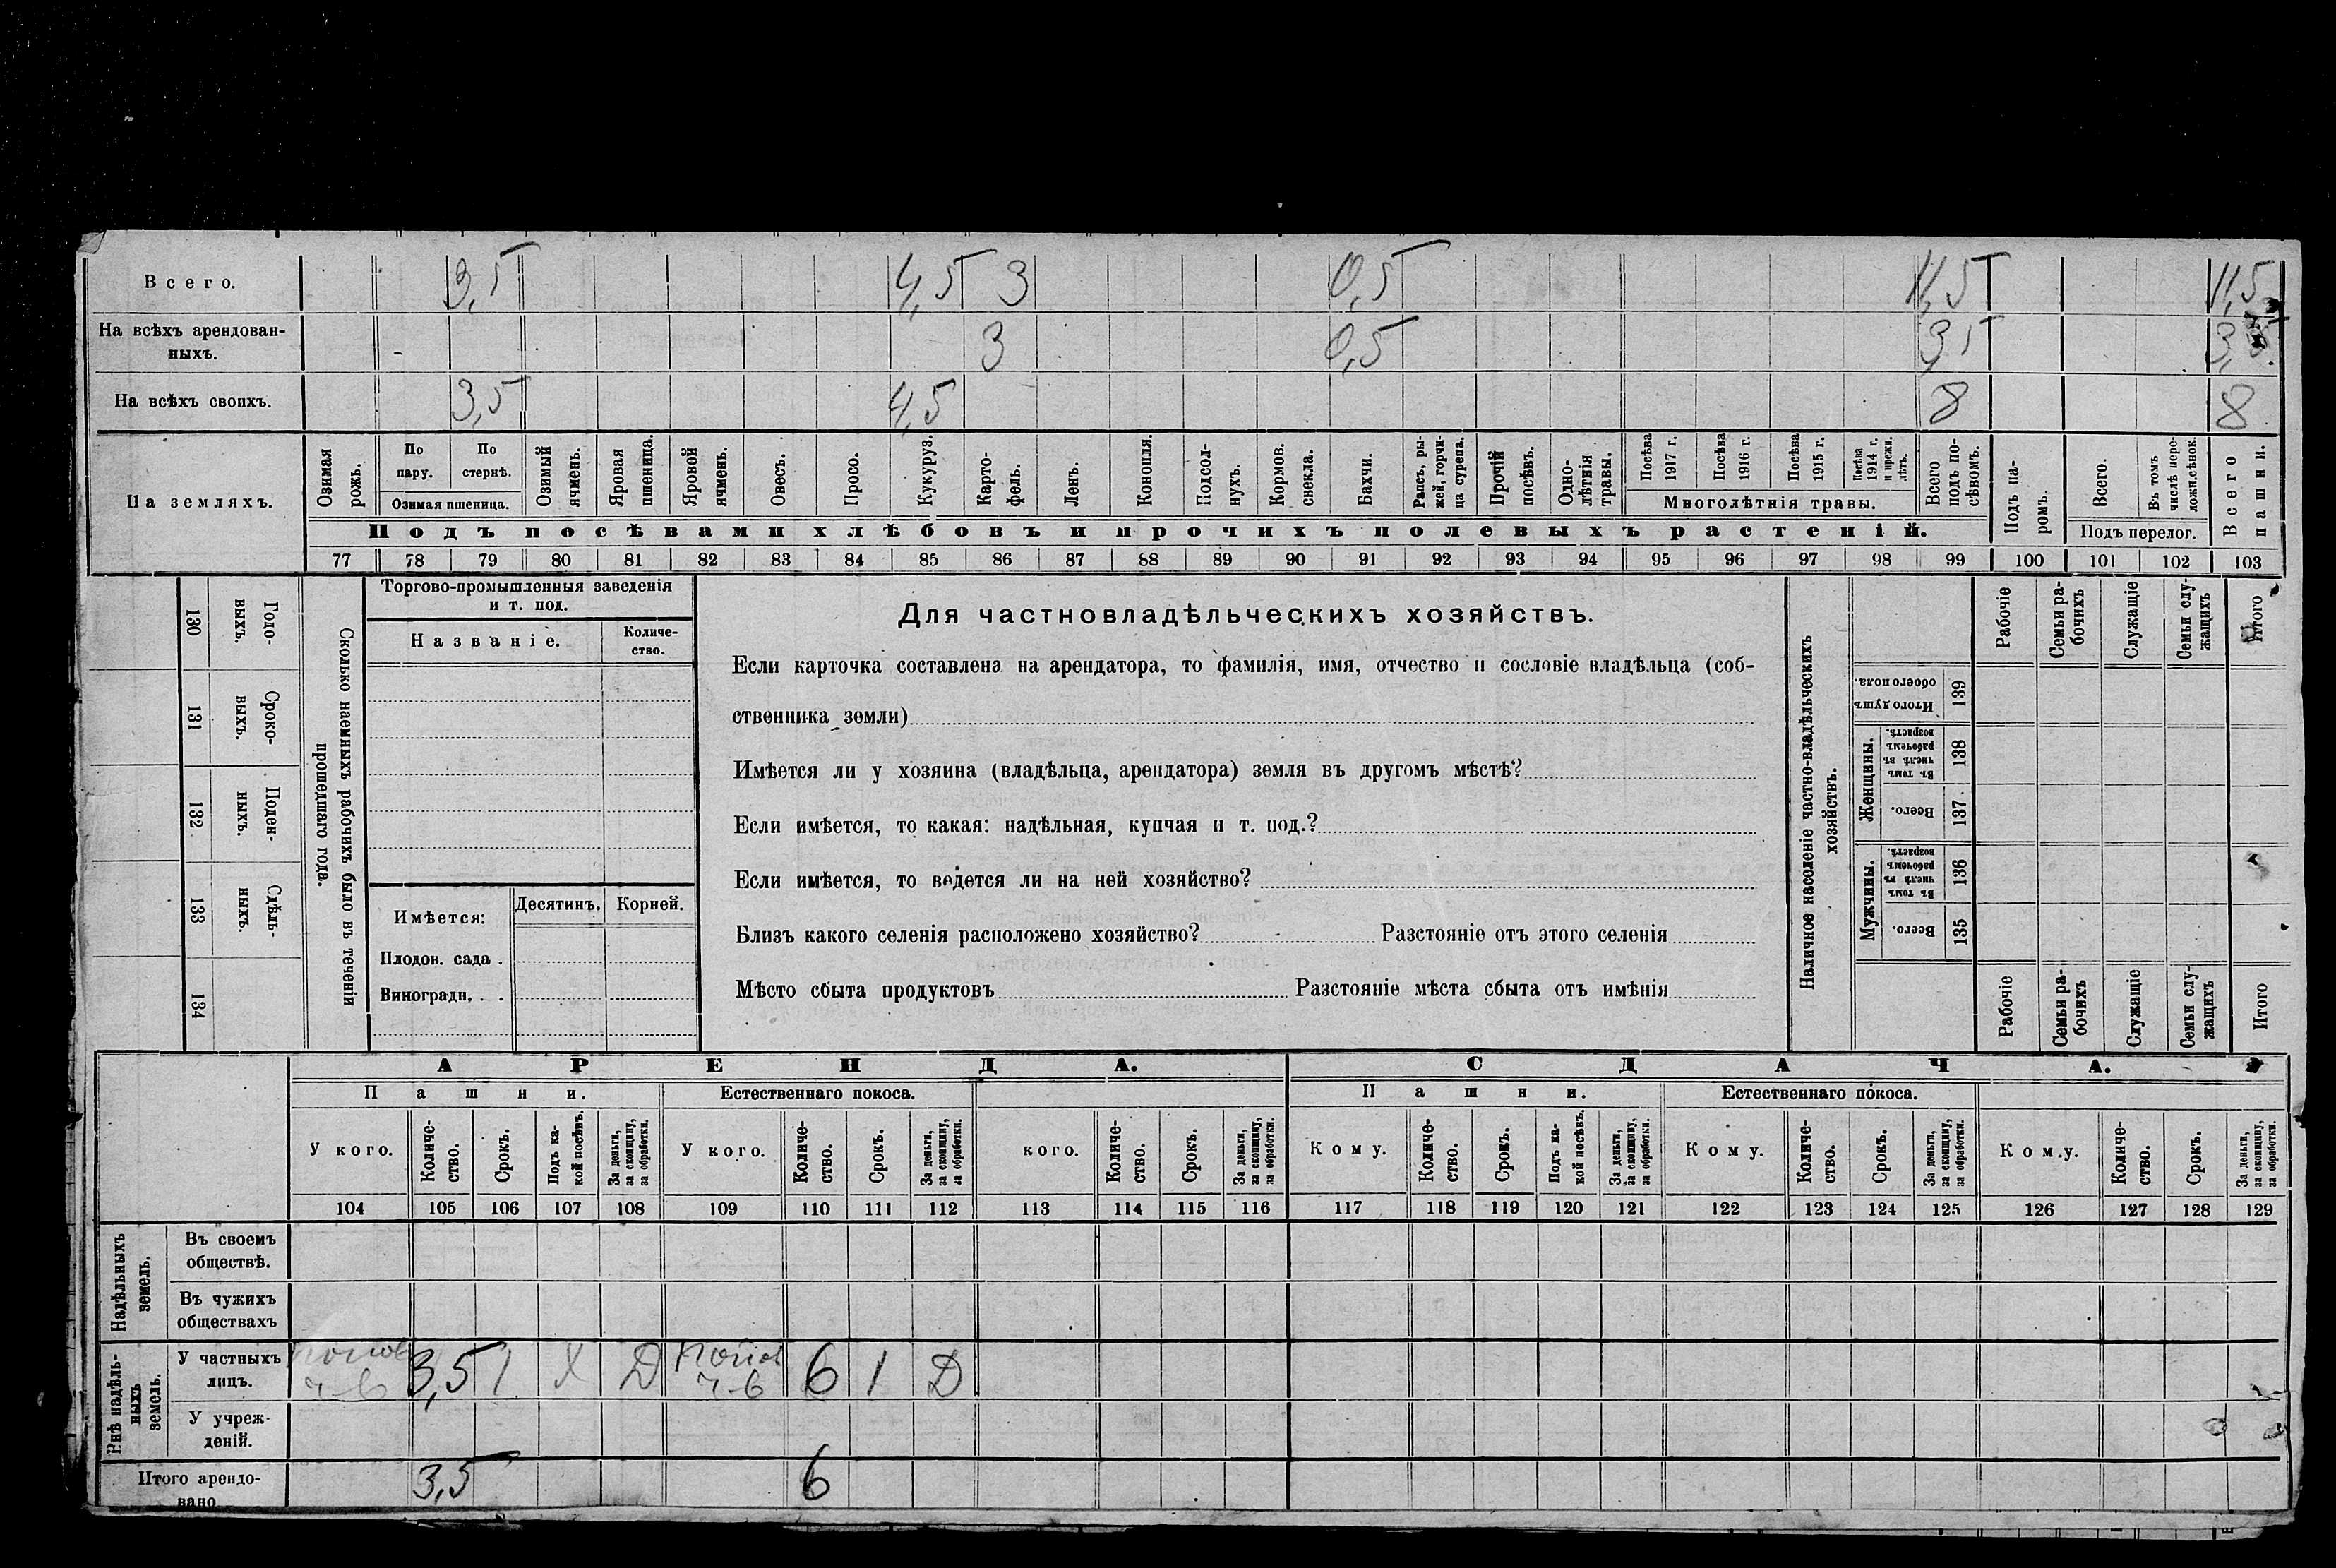 Всего. 3,5 4,5 3 0,5 11,5 11,5
На всѣхъ арендован-
ныхъ. 3 0,5 3,5
На всѣхъ своихъ. 3,5 4,5 8 8
На земляхъ.
Озимая рожь.
По пару.
По стернѣ.
Озимая пшеница.
Озимый ячмень.
Яровая пшеница.
Яровой ячмень.
Овесъ.
Просо.
Кукуруз.
Карто-
фель.
Ленъ.
Конопля.
Подсол-
нухъ.
Кормов. свекла.
Бахчи.
Рапсъ, ры-
жей, горчи-
ца сурепа.
Прочій посѣвъ.
Одно-
лѣтнія травы.
Посѣва 1917 г.
Посѣва 1916 г.
Посѣва 1915 г.
Посѣва 1914 г. и прежн. лѣтъ.
Многолѣтнія травы.
Всего подъ по-
сѣвомъ.
Подъ па-
ромъ.
Всего.
Въ томъ числѣ перс-
ложн.сѣнок.
Подъ перелог.
Всего пашни.
Подъ посѣвами хлѣбовъ и прочихъ полевыхъ растеній.
77 78 79 80 81 82 83 84 85 86 87 88 89 90 91 92 93 94 95 96 97 98 99 100 101 102 103
130 Годо-
выхъ.
131 Сроко-
выхъ.
132 Поден-
ныхъ.
133 Сдѣль-
ныхъ.
134
Сколько наемныхъ рабочихъ было въ теченіи
прошедшаго года.
Торгово-промышленныя заведенія
и т. под.
Названіе.
Количе-
ство.
Имѣется:
Десятинъ. Корней.
Плодов. сада .
Виноградн. . .
Для частновладѣльческихъ хозяйствъ.
Если карточка составлена на арендатора, то фамилія, имя, отчество и сословіе владѣльца (соб-
ственника земли)
Имѣется ли у хозяина (владѣльца, арендатора) земля въ другомъ мѣстѣ?
Если имѣется, то какая: надѣльная, купчая и т. под.?
Если имѣется, то ведется ли на ней хозяйство?
Близъ какого селенія расположено хозяйство? Разстояніе отъ этого селенія
Мѣсто сбыта продуктовъ Разстояніе мѣста сбыта отъ имѣнія
Наличное населеніе частно-владѣльческихъ
хозяйствъ.
Рабочіе
Семьи ра-
бочихъ
Служащіе
Семьи слу-
жащихъ
Итого
Итого душъ обоего пола. 139
Женщины.
Въ томъ числѣ въ рабочемъ возрастѣ. 138
Всего. 137
Мужчины.
Въ томъ числѣ въ рабочемъ возрастѣ. 136
Всего. 135
Рабочіе
Семьи ра-
бочихъ
Служащіе
Семьи слу-
жащихъ
Итого
АРЕНДА. СДАЧА.
Пашни. Естественнаго покоса. Пашни. Естественнаго покоса.
У кого.
Количе-
ство.
Срокъ.
Подъ ка-
кой посѣвъ.
За деньги, за скопщину, за обработки.
У кого.
Количе-
ство.
Срокъ.
За деньги, за скопщину, за обработки.
кого.
Количе-
ство.
Срокъ.
За деньги, за скопщину, за обработки.
Кому.
Количе-
ство.
Срокъ.
Подъ ка-
кой посѣвъ.
За деньги, за скопщину, за обработки.
Кому.
Количе-
ство.
Срокъ.
За деньги, за скопщину, за обработки.
Кому.
Количе-
ство.
Срокъ.
За деньги, за скопщину, за обработки.
104 105 106 107 108 109 110 111 112 113 114 115 116 117 118 119 120 121 122 123 124 125 126 127 128 129
Надѣльныхъ
земель.
Въ своемъ
обществѣ.
Въ чужихъ
обществахъ
Внѣ надѣль-
ныхъ
земель.
У частныхъ
лицъ. 3,5 1 Х Д 6 1 Д
У учреж-
деній.
Итого арендо-
вано 3,5 6